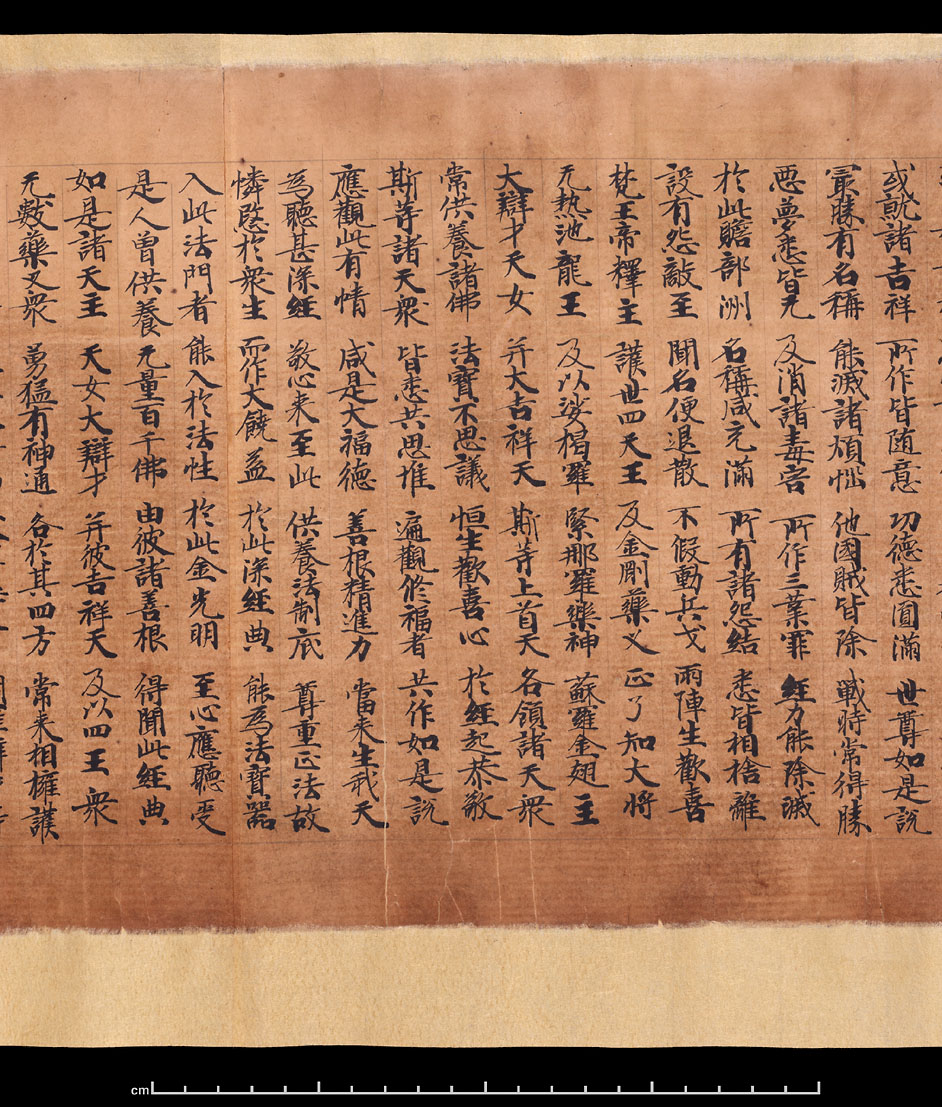 成就諸吉祥 所作皆随意 功德悉圓滿 世尊如是說
冣勝有名稱 能滅諸煩惱 他國賊皆除 戰時常得勝
惡夢悉皆无 及消諸毒害 所作三業罪 經力能除滅
於此贍部洲 名稱咸充滿 所有諸怨結 悉皆相捨離
設有怨敵至 聞名便退散 不假動兵戈 兩陣生歡喜
梵王帝釋主 護世四天王 及金剛藥叉 正了知大將
无熱池龍王 及以娑揭羅 緊那羅樂神 蘇羅金翅主
大辯才天女 并大吉祥天 斯等上首天 各領諸天衆
常供養諸佛 法寶不思議 恒生歡喜心 於經起恭敬
斯等諸天衆 皆悉共思惟 遍觀修福者 共作如是說
應觀此有情 咸是大福德 善根精進力 當来生我天
為聽甚深經 敬心来至此 供養法制底 尊重正法故
憐愍於衆生 而作大饒益 於此深經典 能為法寶器
入此法門者 能入於法性 於此金光明 至心應聽受
是人曾供養 无量百千佛 由彼諸善根 得聞此經典
如是諸天主 天女大辯才 并彼吉祥天 及以四王衆
无數藥叉衆 勇猛有神通 各於其四方 常来相擁護
cm